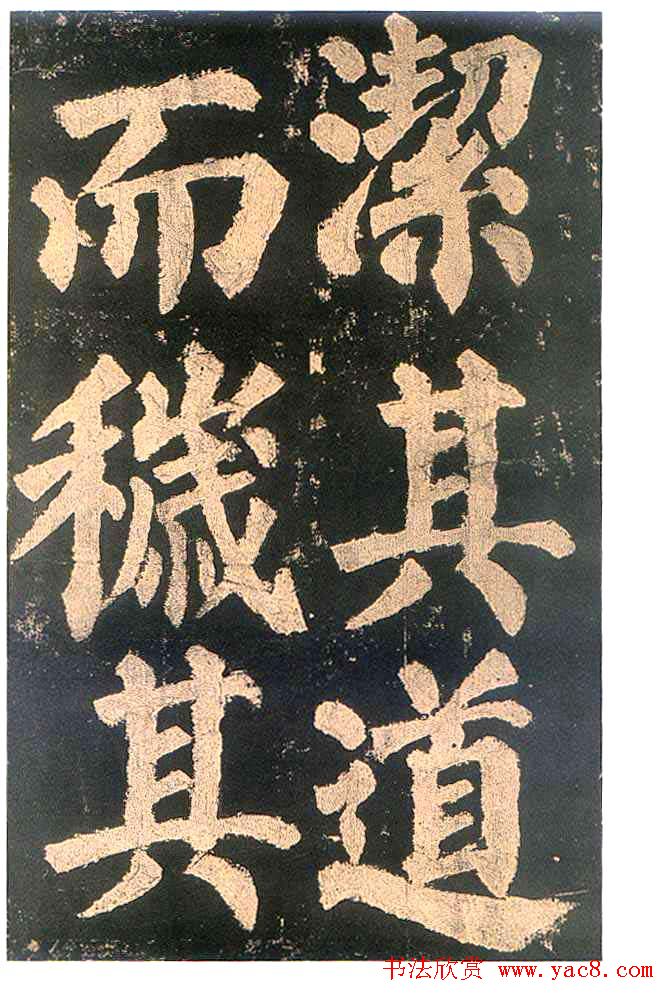 潔其道
而穢其
书法欣赏 www.yac8.com